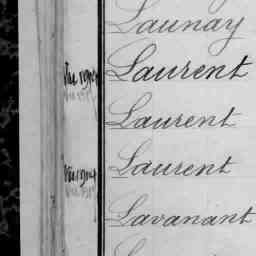 Launay
Laurent
Laurent
Laurent
Lavanant